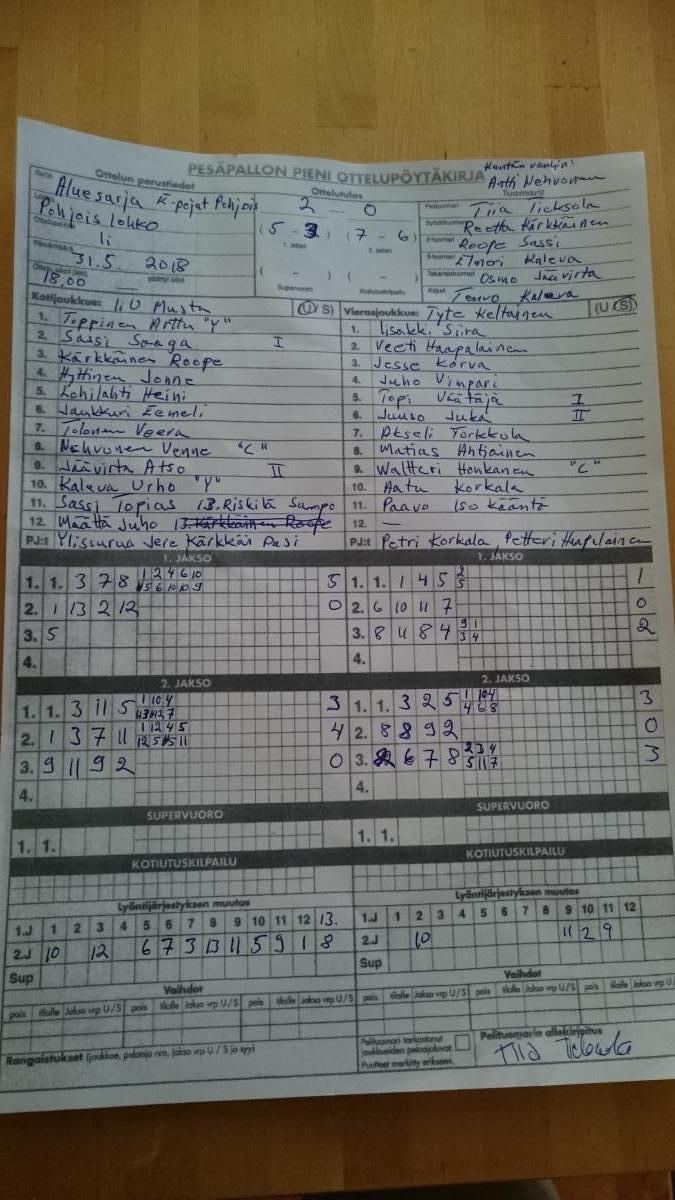 PESÄPALLON PIENI OTTELUPÖYTÄKIRJA
Kentän vanhin:
Artti Nehvonen
Sarja
Ottelun perustiedot
Aluesarja E-pojat Pohjois
Pohjois lohko
Ii
Päivämäärä
31.5. 2018
18.00
Ottelutulos
2 - 0
(5 - 3) (7 - 6)
1. jakso 2. jakso
( - ) ( - )
Supervuoro Kotiutuskilpailu
Tuomarit
Pelituomari Tiia Ticksola
Syöttötuomari Reetta Kärkkäinen
2-tuomari Roope Sassi
3-tuomari Elmeri Kaleva
Takarajatuomari Osmo Jäävirta
Kirjuri Teuvo Kaleva
Kotijoukkue: IiU Musta (U/S)
1. Toppinen Arttu "Y"
2. Sassi Saaga I
3. Kärkkäinen Roope
4. Hyttinen Jonne
5. Lohilahti Heini
6. Jaukkuri Eemeli
7. Tolonen Veera
8. Nehvonen Venne "C"
9. Jäävirta Atso II
10. Kaleva Urho "Y"
11. Sassi Topias 13. Riskilä Sampo
12. Määttä Juho 13. Kärkkäinen Roope
PJ:t Ylisuurua Jere Kärkkäin Pasi
Vierasjoukkue: Tyte Keltainen (U/S)
1. Iisakki Siira
2. Veeti Haapalainen
3. Jesse Korva
4. Juho Vimpari
5. Topi Väätäjä I
6. Juuso Juka II
7. Akseli Torkkola
8. Matias Ahtiainen
9. Waltteri Honkanen "C"
10. Aatu Korkala
11. Paavo Isokääntö
12. —
PJ:t Petri Korkala, Petteri Haapalainen
1. JAKSO
1. 1. 3 7 8 5
2. 1 13 2 12 0
3. 5
4.
2. JAKSO
1. 1. 3 11 5 3
2. 1 3 7 11 4
3. 9 11 9 2 0
4.
SUPERVUORO
1. 1.
KOTIUTUSKILPAILU
1. JAKSO
1. 1. 1 4 5 2 5 1
2. 6 10 11 7 0
3. 8 11 8 4 9 1 3 4 2
4.
2. JAKSO
1. 1. 3 2 5 1 10 4 4 6 8 3
2. 8 8 9 2 0
3. 6 7 8 2 3 4 5 11 7 3
4.
SUPERVUORO
1. 1.
KOTIUTUSKILPAILU
Lyöntijärjestyksen muutos
1.J 1 2 3 4 5 6 7 8 9 10 11 12 13.
2.J 10 12 6 7 3 13 11 5 9 1 8
Sup
Vaihdot
pois tilalle Jakso vrp U/S pois tilalle Jakso vrp U/S pois tilalle Jakso vrp U/S
Rangaistukset (joukkue, pelaaja nro, jakso vrp U / S ja syy)
Lyöntijärjestyksen muutos
1.J 1 2 3 4 5 6 7 8 9 10 11 12
2.J 10 11 2 9
Sup
Vaihdot
pois tilalle Jakso vrp U/S pois tilalle Jakso vrp U/S pois tilalle Jakso vrp U/S
Pelituomari tarkastanut
joukkueiden pelaajaluvat
Puutteet merkitty erikseen.
Pelituomarin allekirjoitus